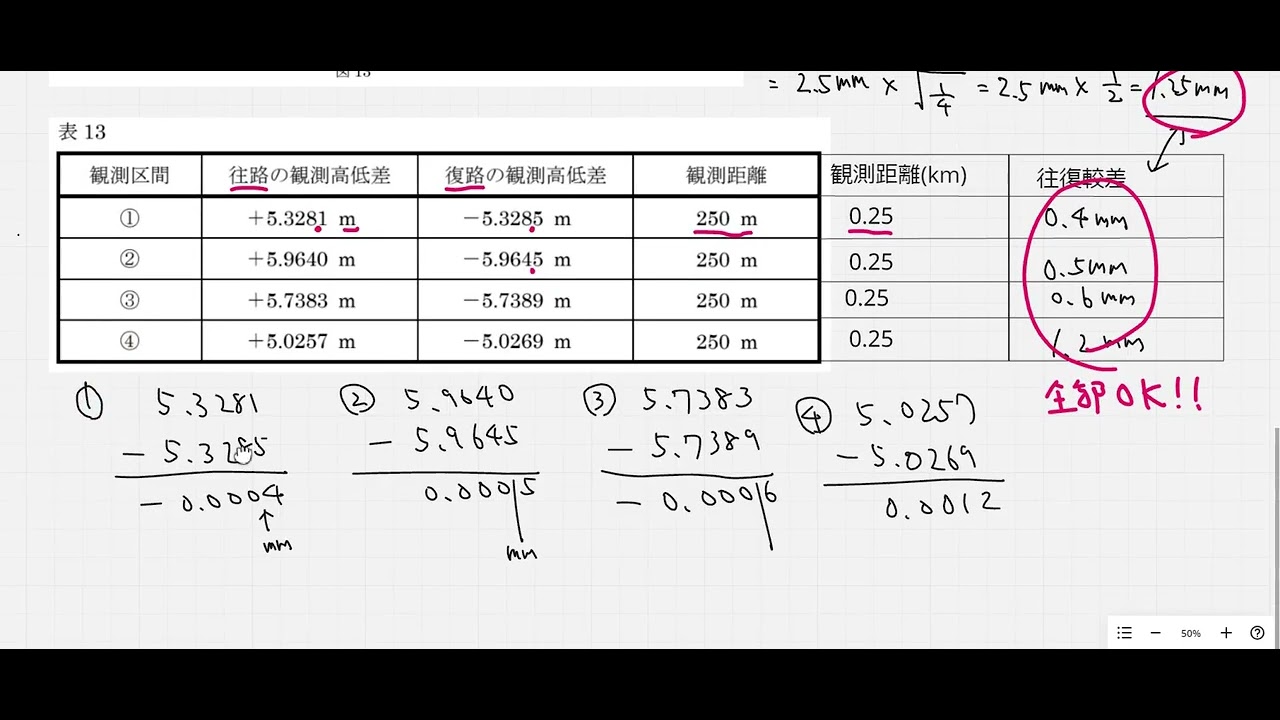 図 13
= 2.5mm × √1/4 = 2.5mm × 1/2 = 1.25mm
表 13
観測区間 往路の観測高低差 復路の観測高低差 観測距離 観測距離(km) 往復較差
① +5.3281 m −5.3285 m 250 m 0.25 0.4mm
② +5.9640 m −5.9645 m 250 m 0.25 0.5mm
③ +5.7383 m −5.7389 m 250 m 0.25 0.6mm
④ +5.0257 m −5.0269 m 250 m 0.25 1.2mm
全部OK!!
① 5.3281 ② 5.9640 ③ 5.7383 ④ 5.0257
− 5.3285 − 5.9645 − 5.7389 − 5.0269
− 0.0004 0.0005 − 0.0006 0.0012
↑
mm mm
50%